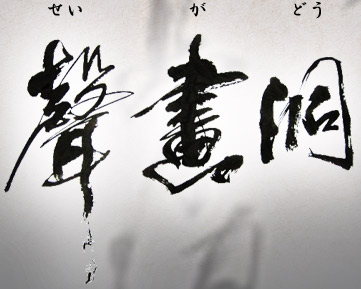 せいがどう
聲畫洞